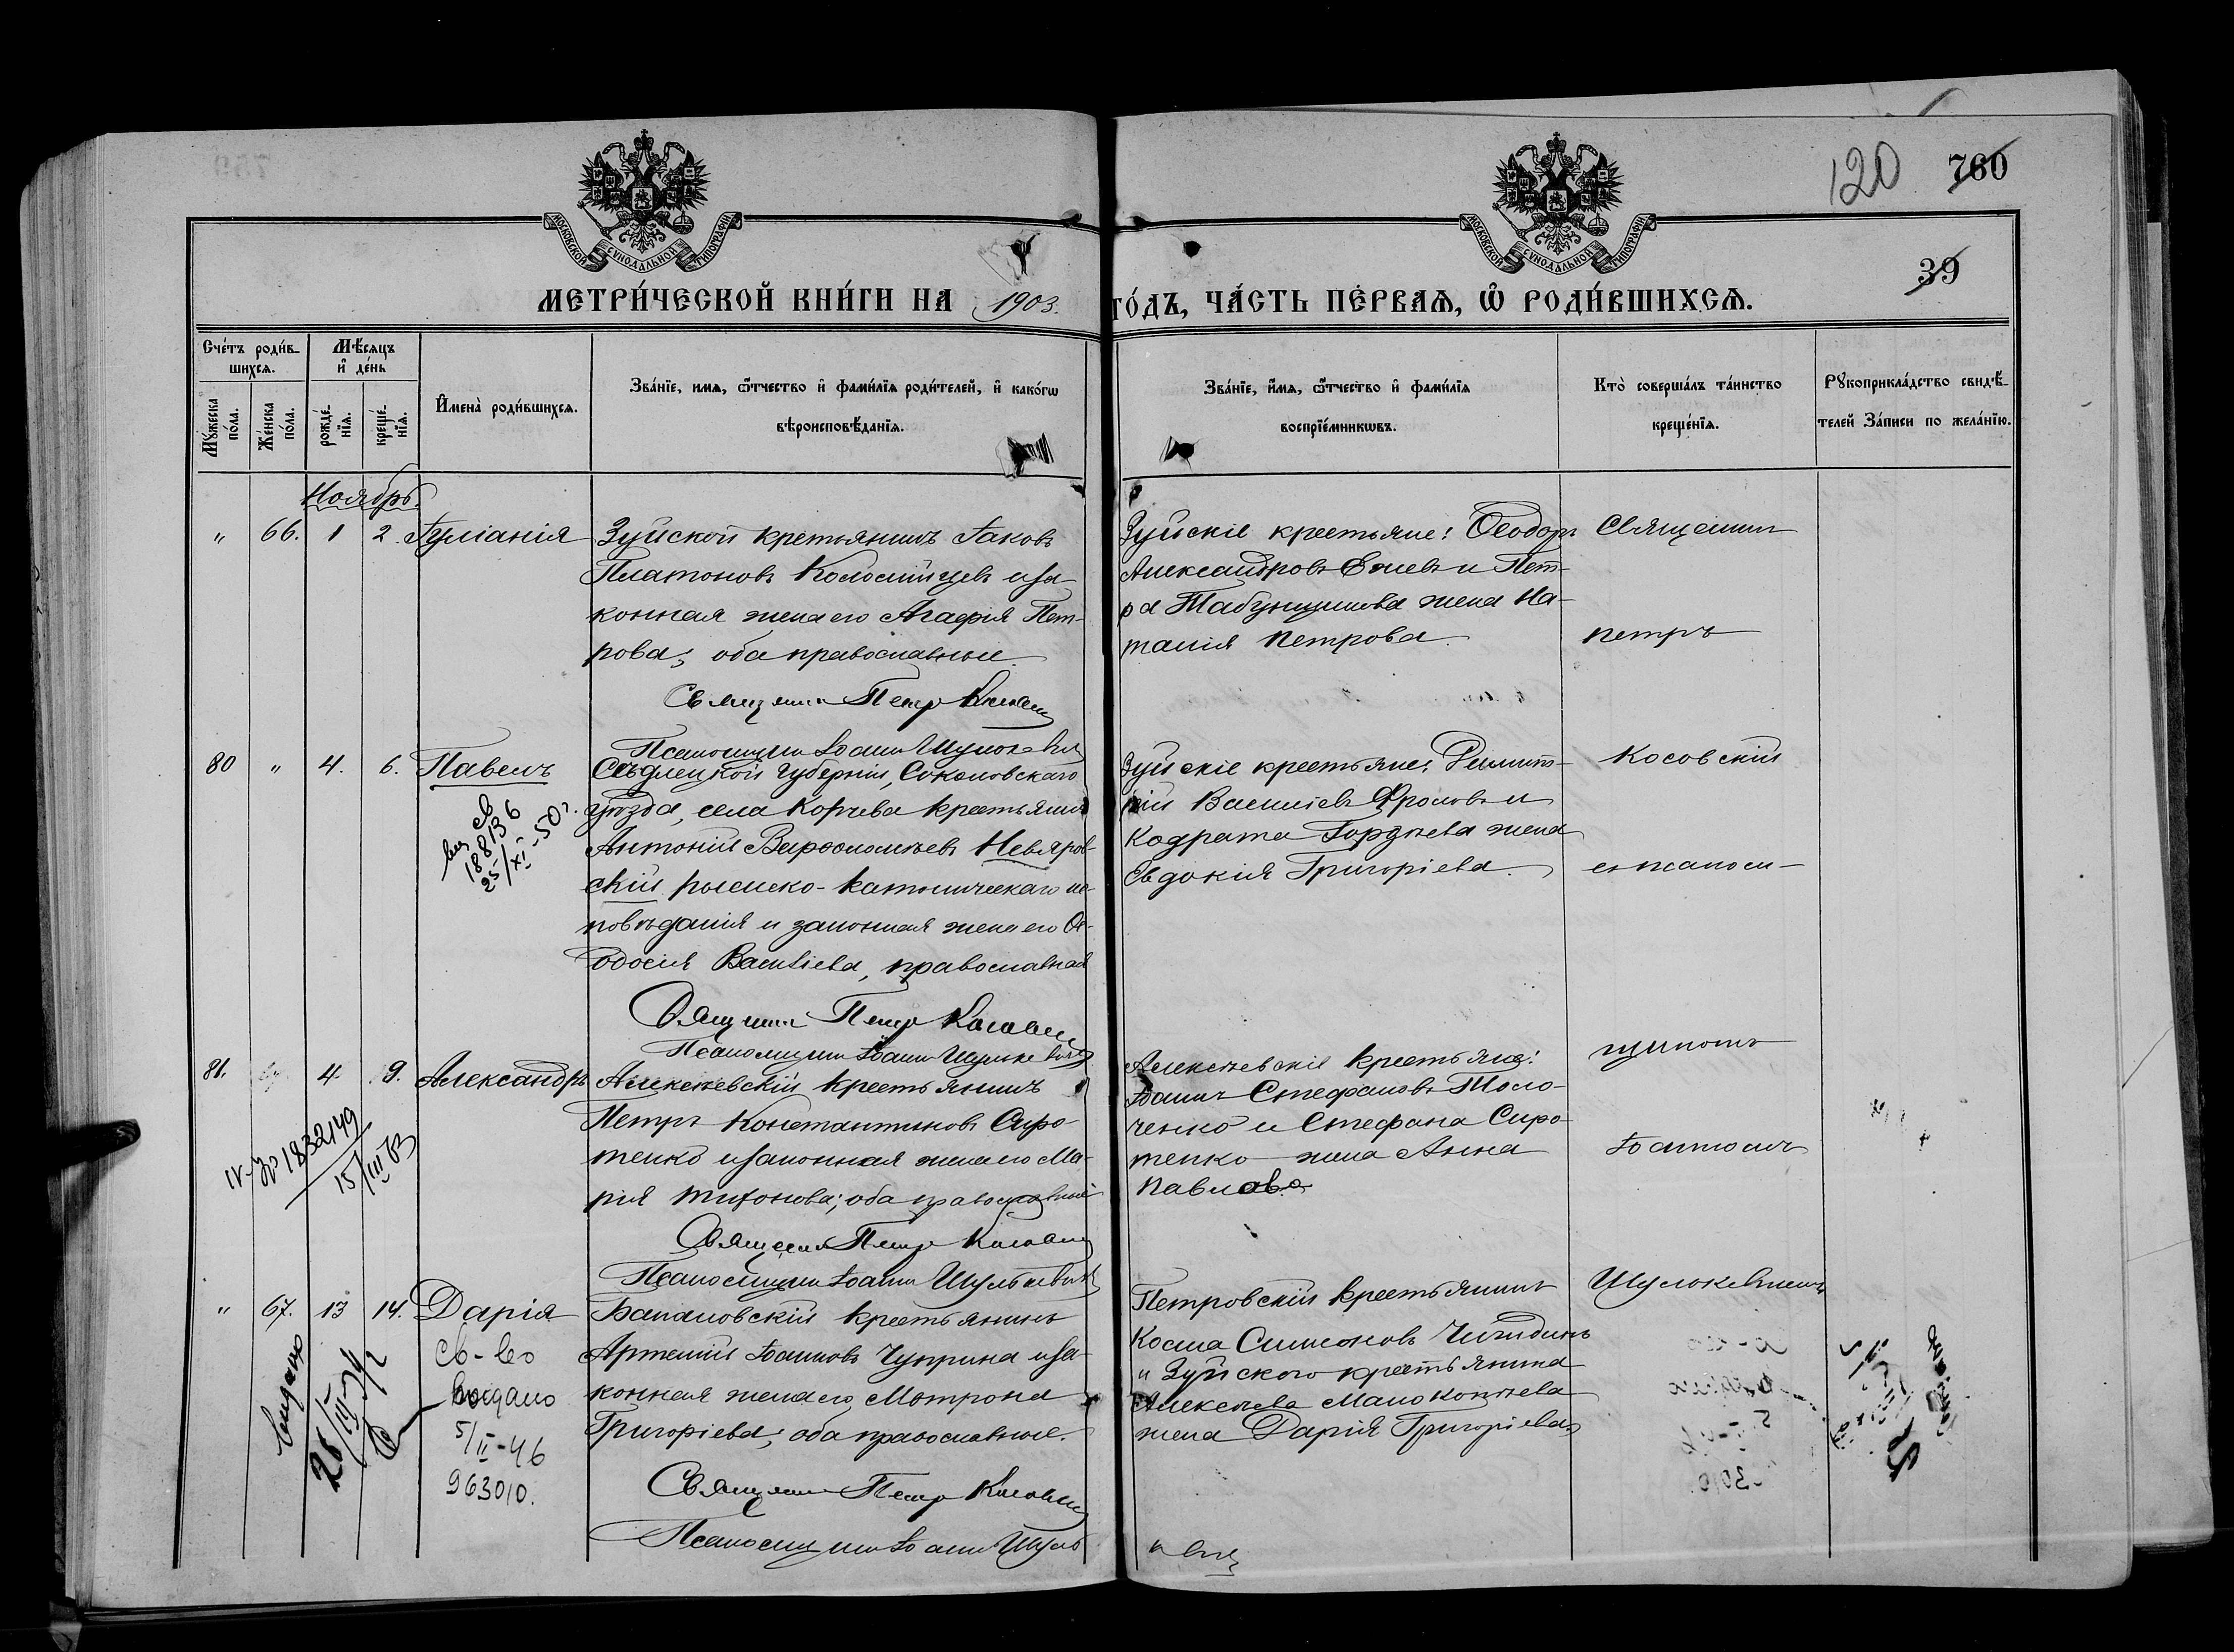 120 760
39
МОСКОВСКОЙ СѴНОДАЛЬНОЙ ТИПОГРАФІИ
МОСКОВСКОЙ СѴНОДАЛЬНОЙ ТИПОГРАФІИ
МЕТРИ́ЧЕСКОЙ КНИ́ГИ НА 1903. ГО́ДЪ, ЧА́СТЬ ПЕ́РВАѦ, Ѡ РОДИ́ВШИХСѦ.
Сче́тъ роди́в-
шихсѧ.
Мꙋ́жеска
по́ла.
Же́нска
по́ла.
Мѣ́сѧцъ
и҆ де́нь
рожде́-
нїѧ.
креще́-
нїѧ.
И҆мена̀ роди́вшихсѧ.
Зва́нїе, имѧ, ѻ҆́тчество и҆ фами́лїѧ роди́телей, и҆ како́гѡ
вѣроисповѣ́данїѧ.
Зва́нїе, и҆́мѧ, ѻ҆́тчество и҆ фами́лїѧ
воспрїе́мникѡвъ.
Кто̀ соверша́лъ та́инство
креще́нїѧ.
Рꙋкоприкла́дство свидѣ́-
телей За́писи по жела́нїю.
Ноябрь.
" 66. 1 2. Іуліанія
Зуйской крестьянинъ Іаковъ
Платоновъ Коломійцевъ и за-
конная жена его Агафія Пет-
рова; оба православные.
Священникъ Петръ Косовскій
Псаломщикъ Іоаннъ Шулькевичъ
Зуйскіе крестьяне: Ѳеодоръ
Александровъ Ежевъ и Пет-
ра Табунщикова жена На-
талія Петрова.
Священникъ
Петръ
80 " 4. 6. Павелъ
св
188136
25/XI-50г.
Сѣдлецкой губерніи, Соколовскаго
уѣзда, села Корчева крестьянинъ
Антоній Варѳоломѣевъ Невяров-
скій римско-католическаго ис-
повѣданія и законная жена его Ѳе-
одосія Васильева, православная
Священникъ Петръ Косовскій
Псаломщикъ Іоаннъ Шулькевичъ
Зуйскіе крестьяне: Димит-
рій Василіевъ Фроловъ и
Кодрата Гордѣева жена
Евдокія Григоріева.
Косовскій
съ псалом-
81. 4. 9. Александръ
1832149
15/III
Алексѣевскій крестьянинъ
Петръ Константиновъ Сиро-
тенко и законная жена его Ма-
рія Тихонова; оба православные
Священникъ Петръ Косовскій
Псаломщикъ Іоаннъ Шулькевичъ
Алексѣевскіе крестьяне:
Іоаннъ Стефановъ Толо-
ченко и Стефана Сиро-
тенко жена Анна
Павлова
щикомъ
Іоанномъ
" 67. 13 14. Дарія
Св-во
выдано
5/II-46
963010.
Выдано
Банановскій крестьянинъ
Артемій Іоанновъ Чуприна и за-
конная жена его Мотрона
Григоріева; оба православные.
Священникъ Петръ Косовскій
Псаломщикъ Іоаннъ Шуль кевичъ
Петровскій крестьянинъ
Косма Симеоновъ
и Зуйского крестьянина
Алексѣева
жена Дарія Григоріева
Шулькевичемъ